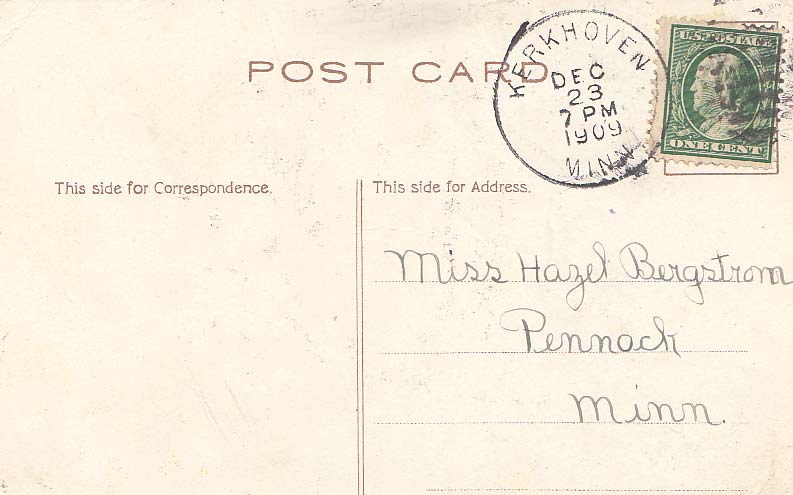 POST CARD
KERKHOVEN
DEC
23
7 PM
1909
MINN
U.S. POSTAGE
ONE CENT
This side for Correspondence.
This side for Address.
Miss Hazel Bergstrom
Pennock
Minn.